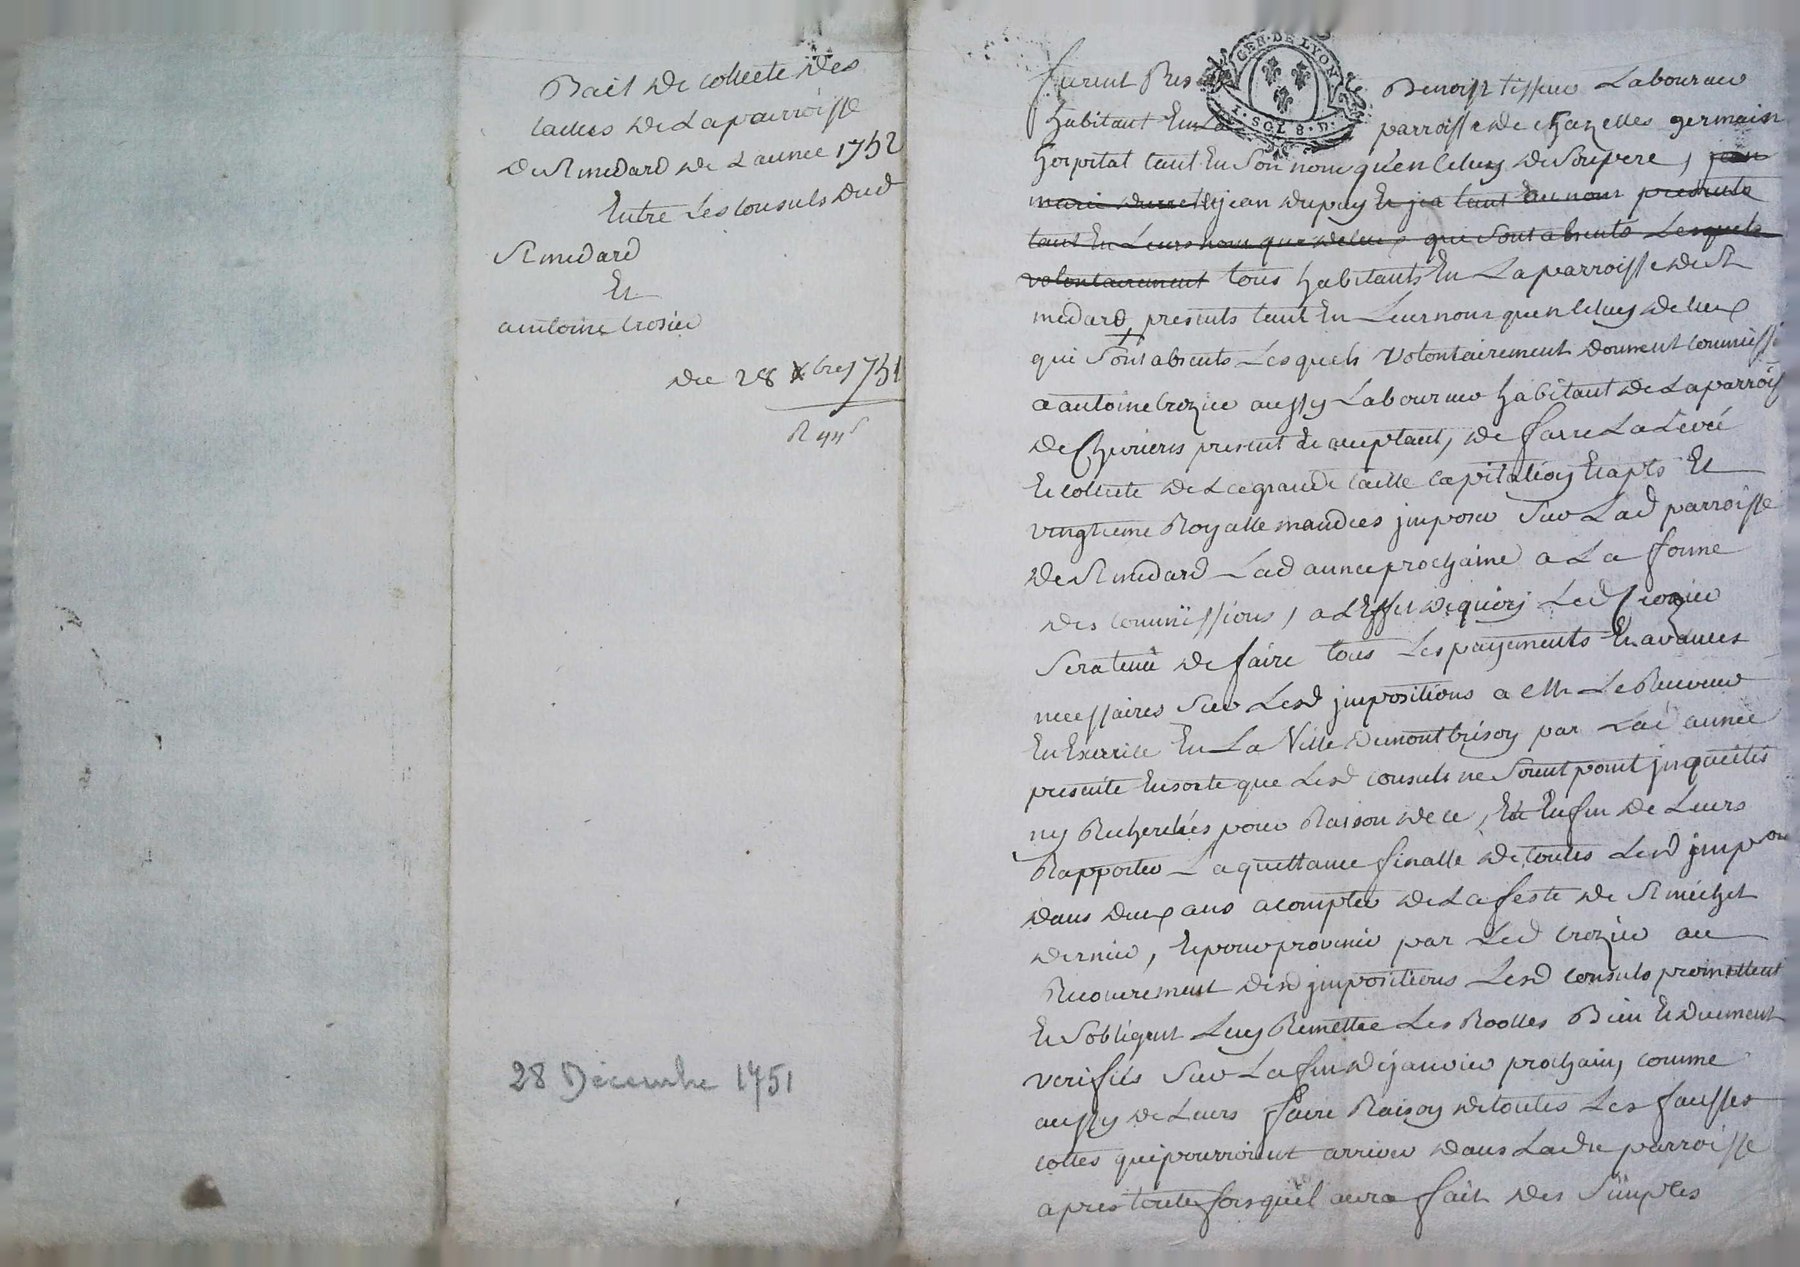 Bail de collecte des
tailles de la parroisse
de St medard de Lannee 1752
Entre Les consuls dud
St medard
Et
antoine crosier
du 28 Xbre 1751
R 44s
28 Décembre 1751
GEN. DE LYON
SOL 8. D.
furent Benoist tisseur Laboureur
habitant En La parroisse de chazelles germain
horpital tant En Son nom quen celuy de Son pere, jean
marie jean dupuy Et tant au nom presents
tant En Leurs nom que de ceux qui Sont absents Lesquels
volontairement tous habitants En La parroisse de St
medard, presents tant En Leur nom quen celuy de ceux
qui Sont absents Lesquels volontairement donnent commiss
a antoine Crozier aussy Laboureur habitant de La parrois
de Chevrieres present Et acceptant, de faire La Levée
Et collecte de La grande taille capitation Et
vingtieme Royalle mandées imposer Sur Lad parroisse
de St medard Lad année prochaine a La forme
des commissions, a Leffet de quoy Led Crozier
Sera tenu de faire tous Les payements Et avances
necessaires Sur Lesd impositions a Mr Le Receveur
En Exercice En La Ville de montbrison par Lad année
presente En sorte que Lesd consuls ne Soient point inquietés
ny Recherchés pour Raison de ce, Et Enfin de Leurs
Rapporter La quittance finalle de toutes Lesd impon
dans deux ans a compter de La feste de St michel
dernier, Et pour provenir par Led Crozier au
Recouvrement desd impositions Lesd consuls promettent
Et Sobligent Luy Remettre Les Roolles Bien Et duement
verifiés Sur La fin de janvier prochain, comme
aussy de Leurs faire Raison de toutes Les fausses
cottes qui pourroient arriver dans Ladte parroisse
apres toutefois quil aura fait des Simples